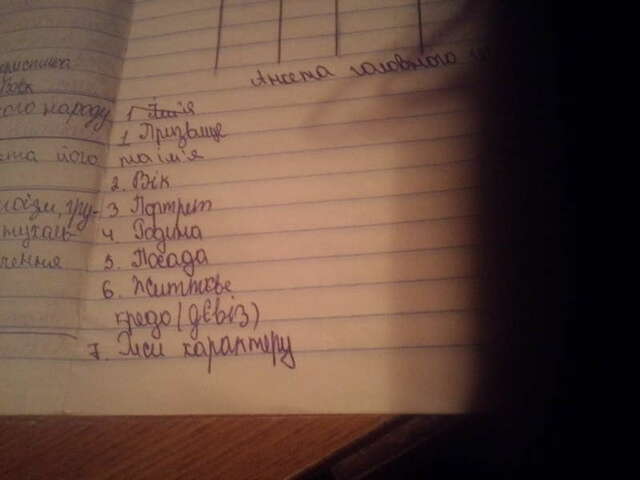 ого народу
та його
ченния
Анкета головного
1 Ім'я
1 Призвище
та ім'я
2. Вік
3 Портрет
4. Родина
5. Посада
6. Життєве
кредо (дєвіз)
7. Риси характеру